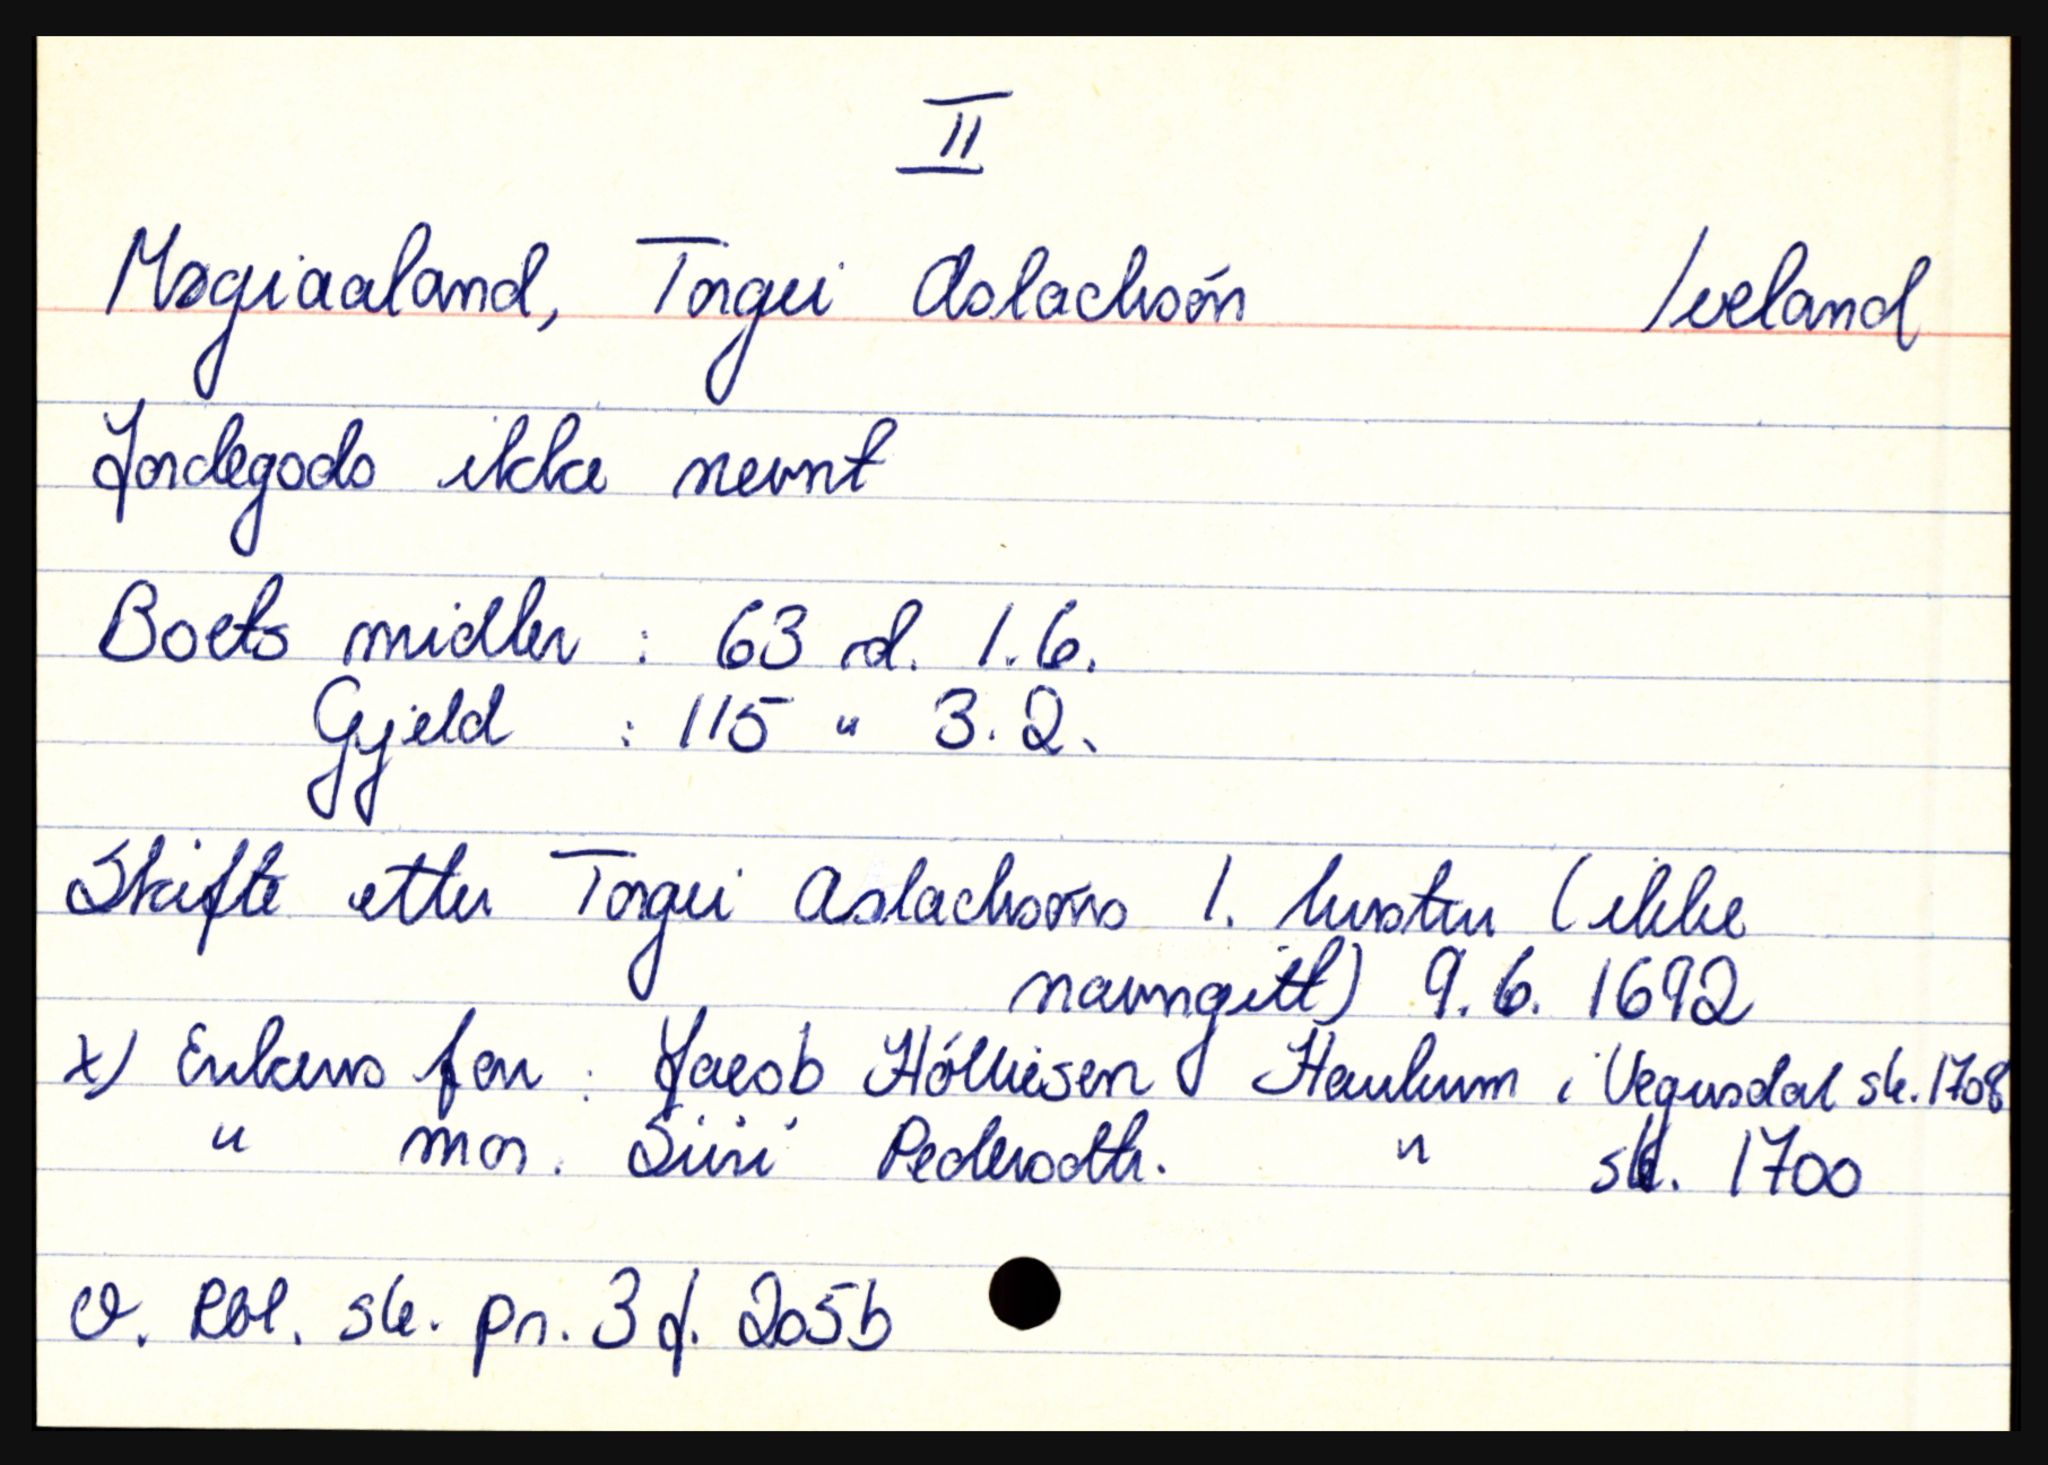 II
Møgiaaland, Torgei Aslachsón Iveland
Jordegods ikke nevnt
Boets midler : 63 rd. 1.6.
Gjeld : 115 " 3.2.
Skifte etter Torgei Aslachsóns 1. hustru (ikke
navngitt) 9.6. 1692
x) Enkens far : Jacob Hólliesen Haukum i Vegusdal sk. 1708
" mor : Siiri Pedersdtr. " sk. 1700
O. Rbl. sk. pr. 3 f. 205b